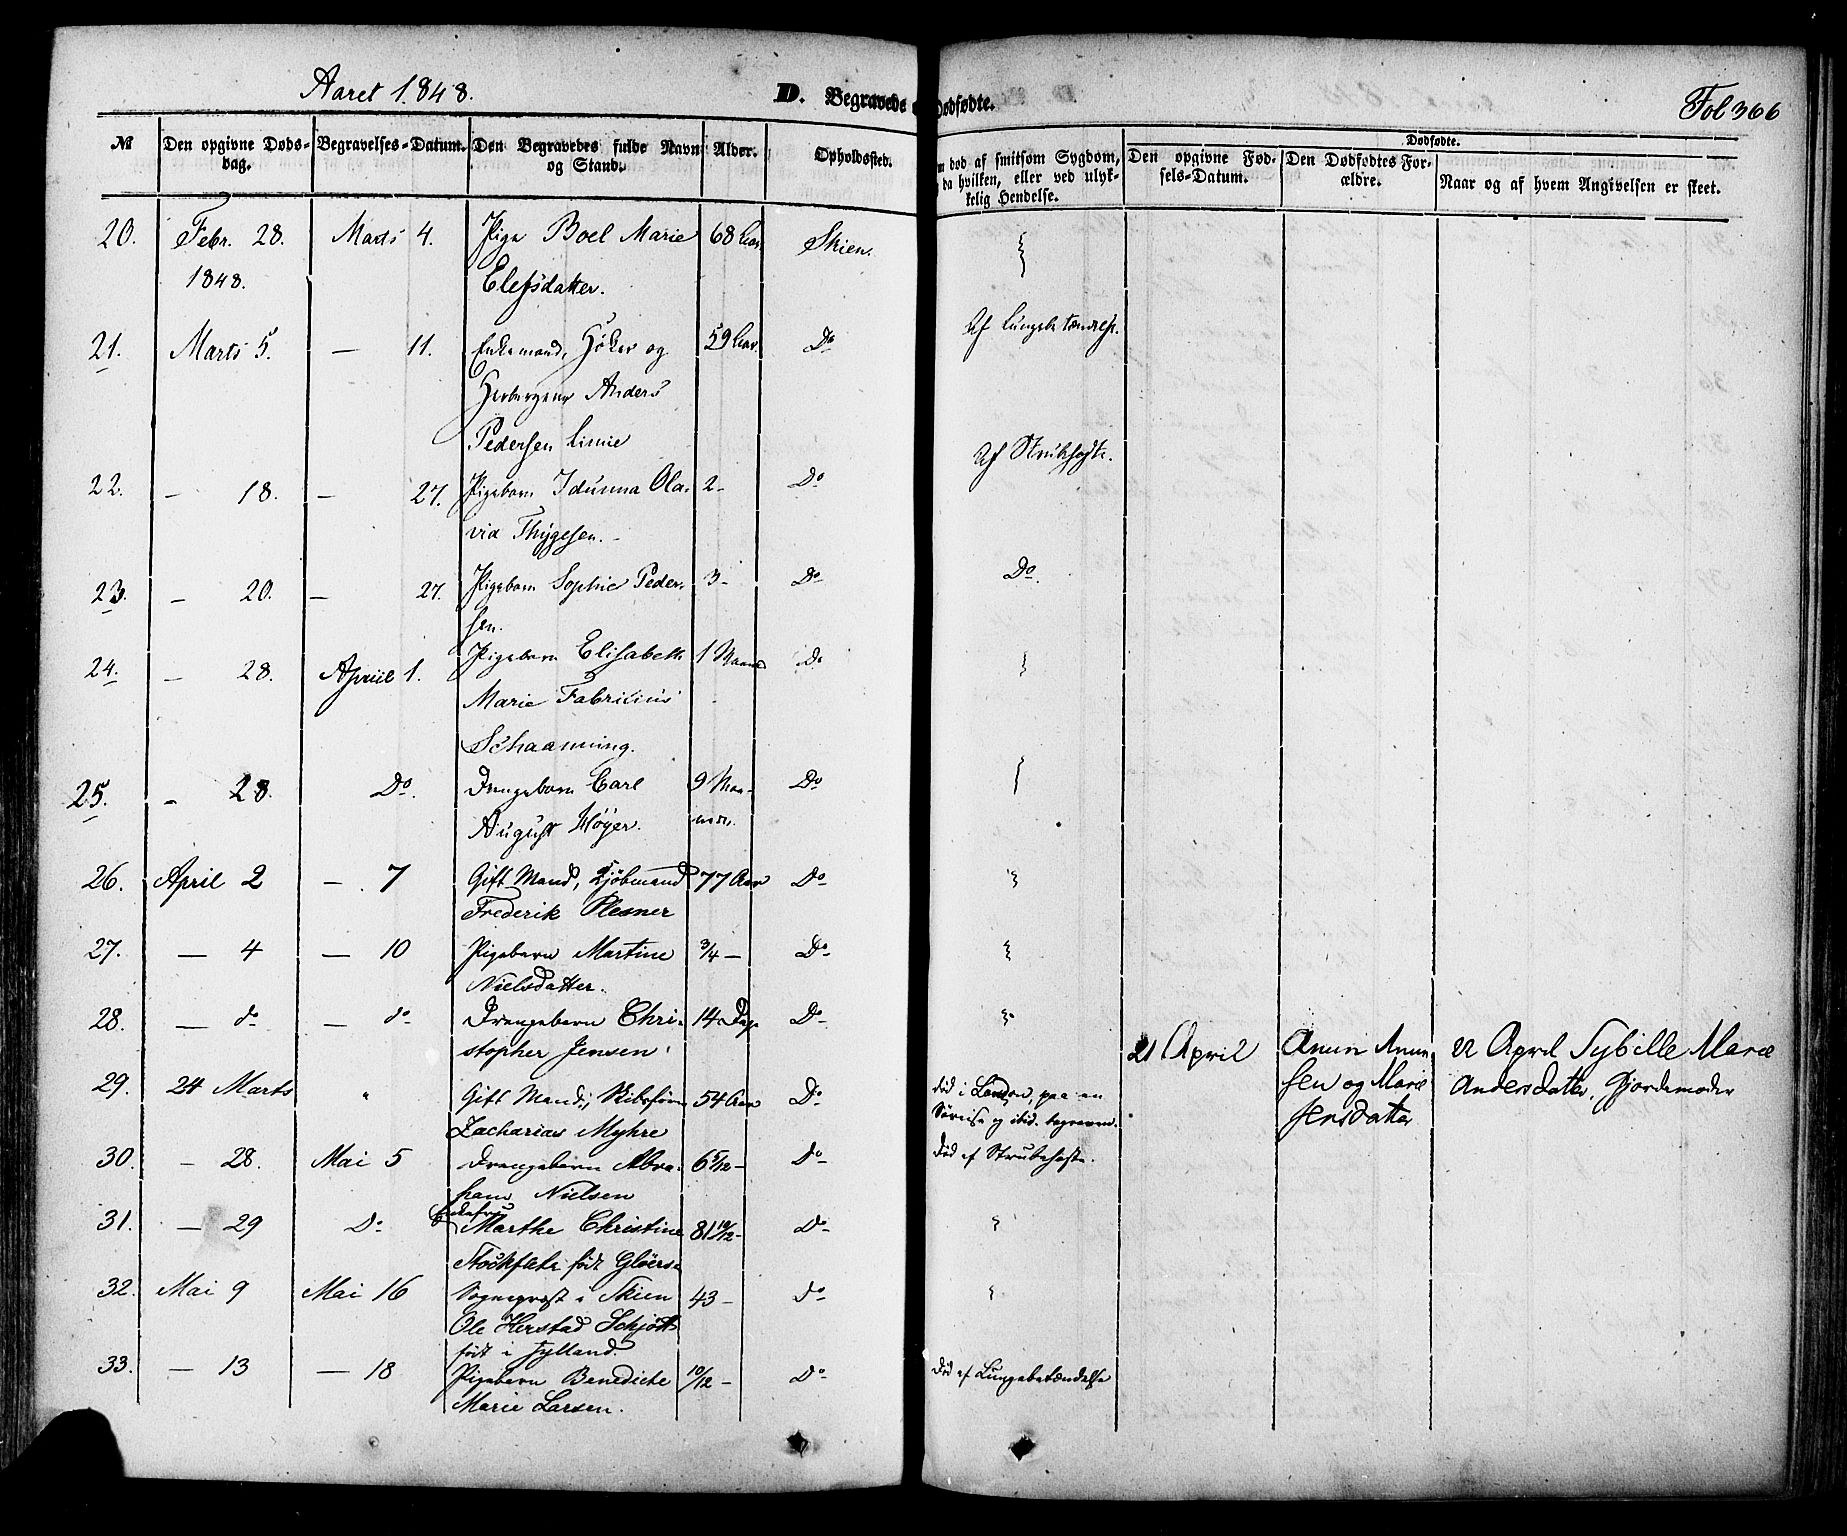 Aaret 1848.
D. Begravede Dødfødte.
Fol 366
№
Den opgivne Døds-
dag.
Begravelses-Datum.
Den Begravedes fulde Navn
og Stand.
Alder.
Opholdssted.
død af smitsom Sygdom,
da hvilken, eller ved ulyk-
kelig Hendelse.
Dødfødte.
Den opgivne Fød-
sels-Datum.
Den Dødfødtes For-
ældre.
Naar og af hvem Angivelsen er skeet.
20. Febr. 28. Marts 4. Pige Boel Marie 68 Aar Skien.
1848. Elefsdatter.
21. Marts 5. — 11. Enkemand, Høker og 59 Aar. Do Af Lungebetændelse.
Anders
Pedersen Linie
22. — 18. — 27. Pigebarn Idunna Ola- 2- Do Af Strubehoste.
via Thygesen.
23. — 20. — 27. Pigebarn Sophie Peder- 3- Do Do.
sen.
24. — 28. April 1. Pigebarn Elisabeth 1 Maaned Do
Marie Fabricius
Schaanning.
25. - 28. Do. Drengebarn Carl 9 Maa- Do
August Høyer. neder.
26. April 2 — 7 Gift Mand, Kjøbmand 77 Aar Do
Frederik Plesner
27. — 4 — 10 Pigebarn Martine 3/4 — Do
Nielsdatter.
28. — do — do Drengebarn Chri- 14 Dage Do
stopher Jensen
21 April Anun Anun- 22 April Sybille Marie
29. 24 Marts " Gift Mand, Skibsfører 54 Aar Do død i London, paa en
sen og Marie Andersdatter, Gjordemoder
Zacharias Myhre Søreise og ibid. begraven.
Jensdatter
30. — 28. Mai 5 Drengebarn Abra- 6 5/12 - Do Død af Strubehoste.
ham Nielsen
31. — 29 Do Enkefru Marthe Christine 81 10/12 - Do
Stockfleth født Gløersen
32. Mai 9 Mai 16 Sognepræst i Skien 43 - Do
Ole Herstad Schjøtt
født i Jylland.
33. — 13 — 18 Pigebarn Benedicte 10/12 - Do Død af Lungebetændelse
Marie Larsen.